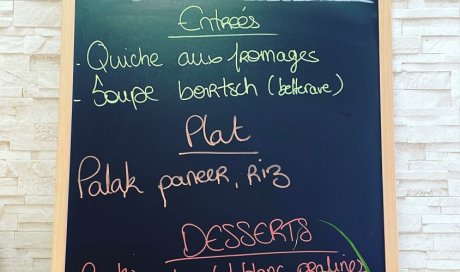 Entrées
- Quiche aux fromages
- Soupe bortsch (betterave)
Plat
Palak paneer, Riz
DESSERTS
blanc pralines